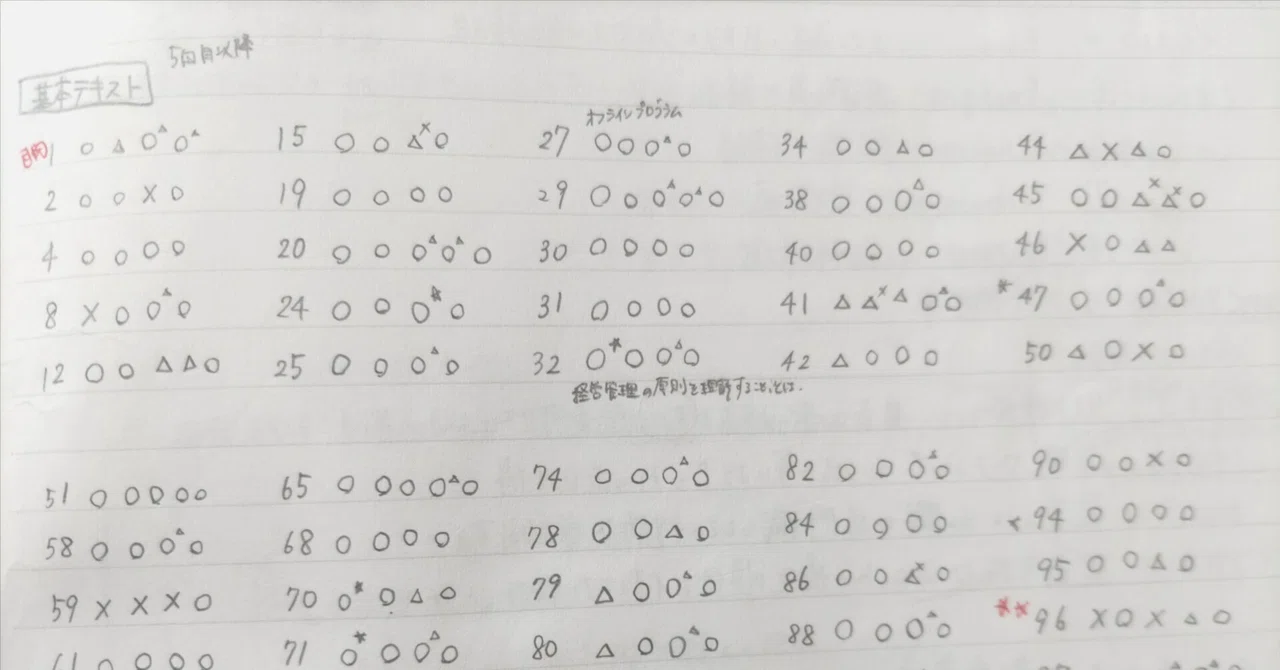 5回目以降
基本テキスト
オフラインプログラム
目的 1 ○ △ ○△ ○△ 15 ○ ○ △× ○ 27 ○ ○ ○△ ○ 34 ○ ○ △ ○ 44 △ × △ ○
2 ○ ○ × ○ 19 ○ ○ ○ ○ 29 ○ ○ ○△ ○△ ○ 38 ○ ○ ○△ ○ 45 ○ ○ △× △× ○
4 ○ ○ ○ ○ 20 ○ ○ ○△ ○△ ○ 30 ○ ○ ○ ○ 40 ○ ○ ○ ○ 46 × ○ △ △
8 × ○ ○△ ○ 24 ○ ○ ○* ○ 31 ○ ○ ○ ○ 41 △ △× △ ○ ○△ *47 ○ ○ ○△ ○
12 ○ ○ △ △ ○ 25 ○ ○ ○△ ○ 32 ○* ○ ○△ ○ 42 △ ○ ○ ○ 50 △ ○ × ○
経営管理の原則を理解することとは.
51 ○ ○ ○ ○ ○ 65 ○ ○ ○ ○△ ○ 74 ○ ○ ○△ ○ 82 ○ ○ ○△ ○ 90 ○ ○ × ○
58 ○ ○ ○△ ○ 68 ○ ○ ○ ○ 78 ○ ○ △ ○ 84 ○ ○ ○ ○ 94 ○ ○ ○ ○
59 × × × ○ 70 ○* ○ △ ○ 79 △ ○ ○△ ○ 86 ○ ○ △× ○ 95 ○ ○ △ ○
61 ○ ○ ○ ○ 71 ○* ○ ○△ ○ 80 △ ○ ○△ ○ 88 ○ ○ ○△ ○ **96 × ○ × △ ○